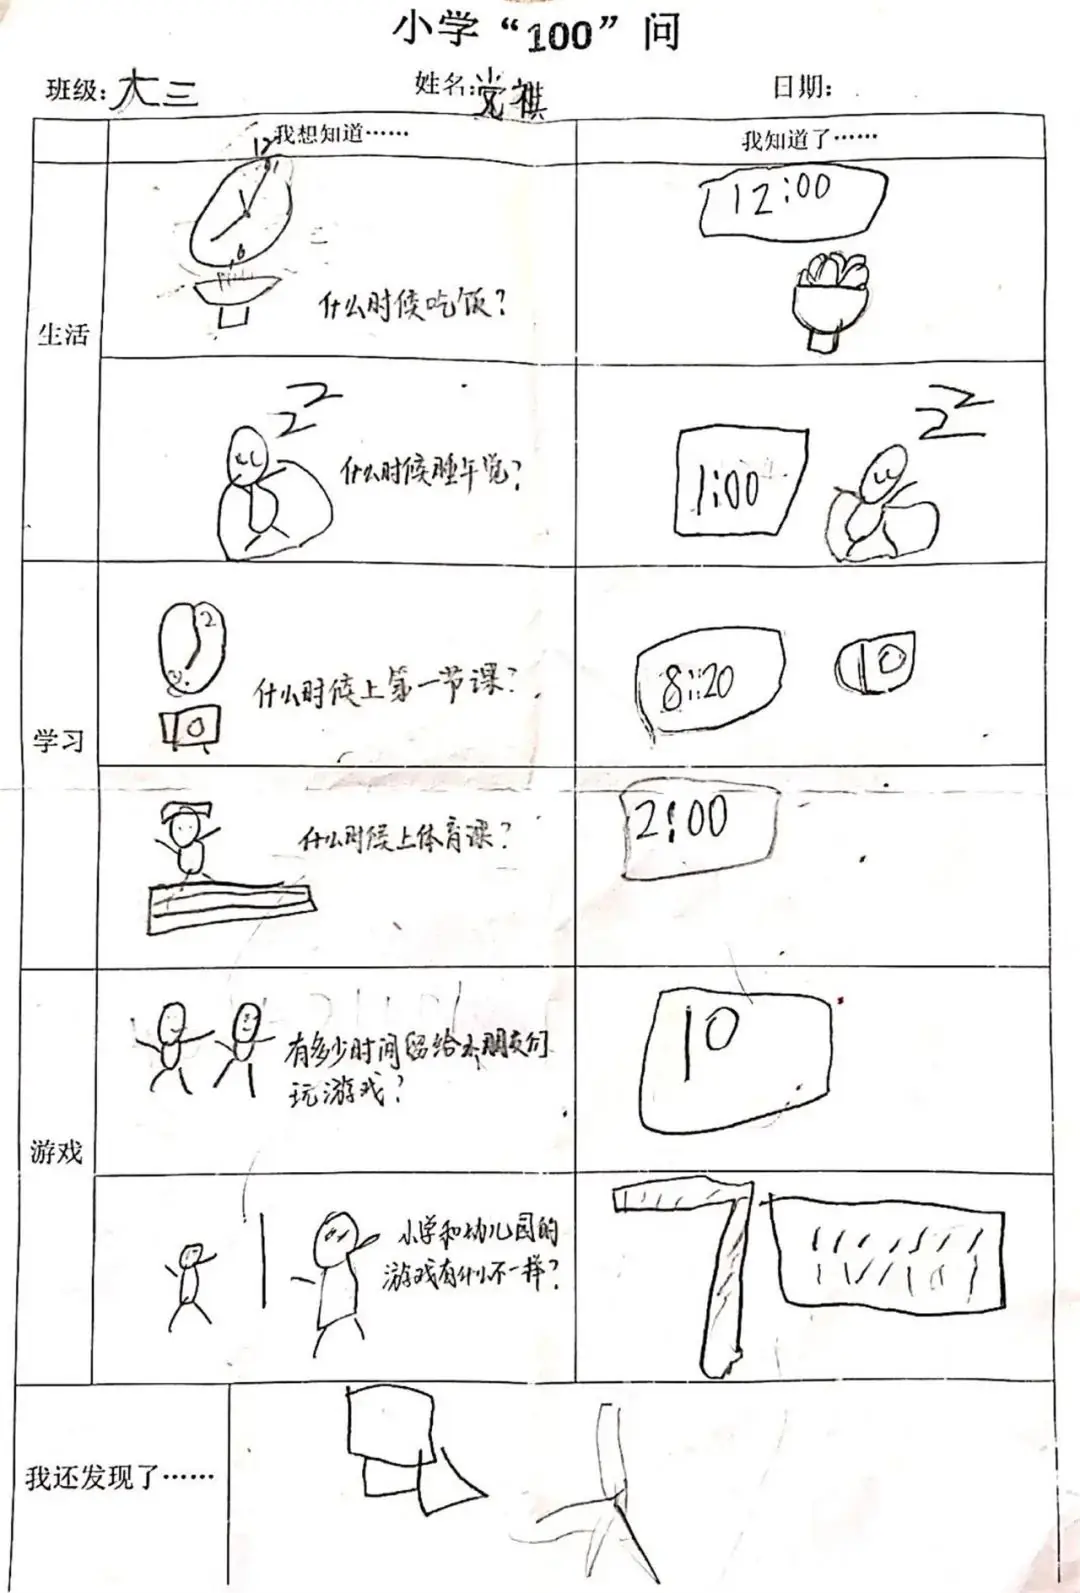 小学“100”问
班级: 大三 姓名: 党祺 日期:
我想知道…… 我知道了……
生活
12
6
什么时候吃饭?
12:00
zz
什么时候睡午觉?
1:00
zz
学习
2
什么时候上第一节课?
8:20
什么时候上体育课?
2:00
游戏
有多少时间留给小朋友们
玩游戏?
10
小学和幼儿园的
游戏有什么不一样?
我还发现了……